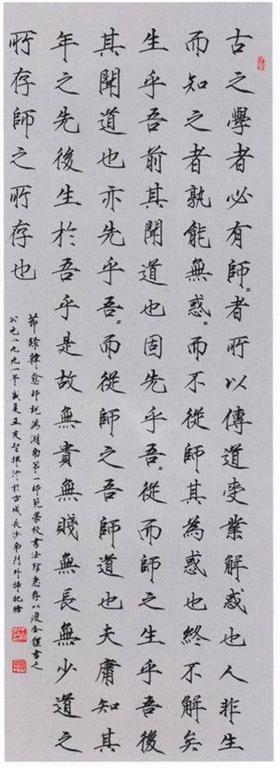 古之學者必有師〻者所以傳道受業解惑也人非生
而知之者孰能無惑〻而不從師其為惑也終不解矣
生乎吾前其聞道也固先乎吾〻從而師之生乎吾後
其聞道也亦先乎吾〻而從師之吾師道也夫庸知其
年之先後生於吾乎是故無貴無賤無長無少道之
所存師之所存也
節錄韓愈師說為湖南第一師範學校書法館惠存以書之
公元一九九一年夏揮汗於古城長沙南門外